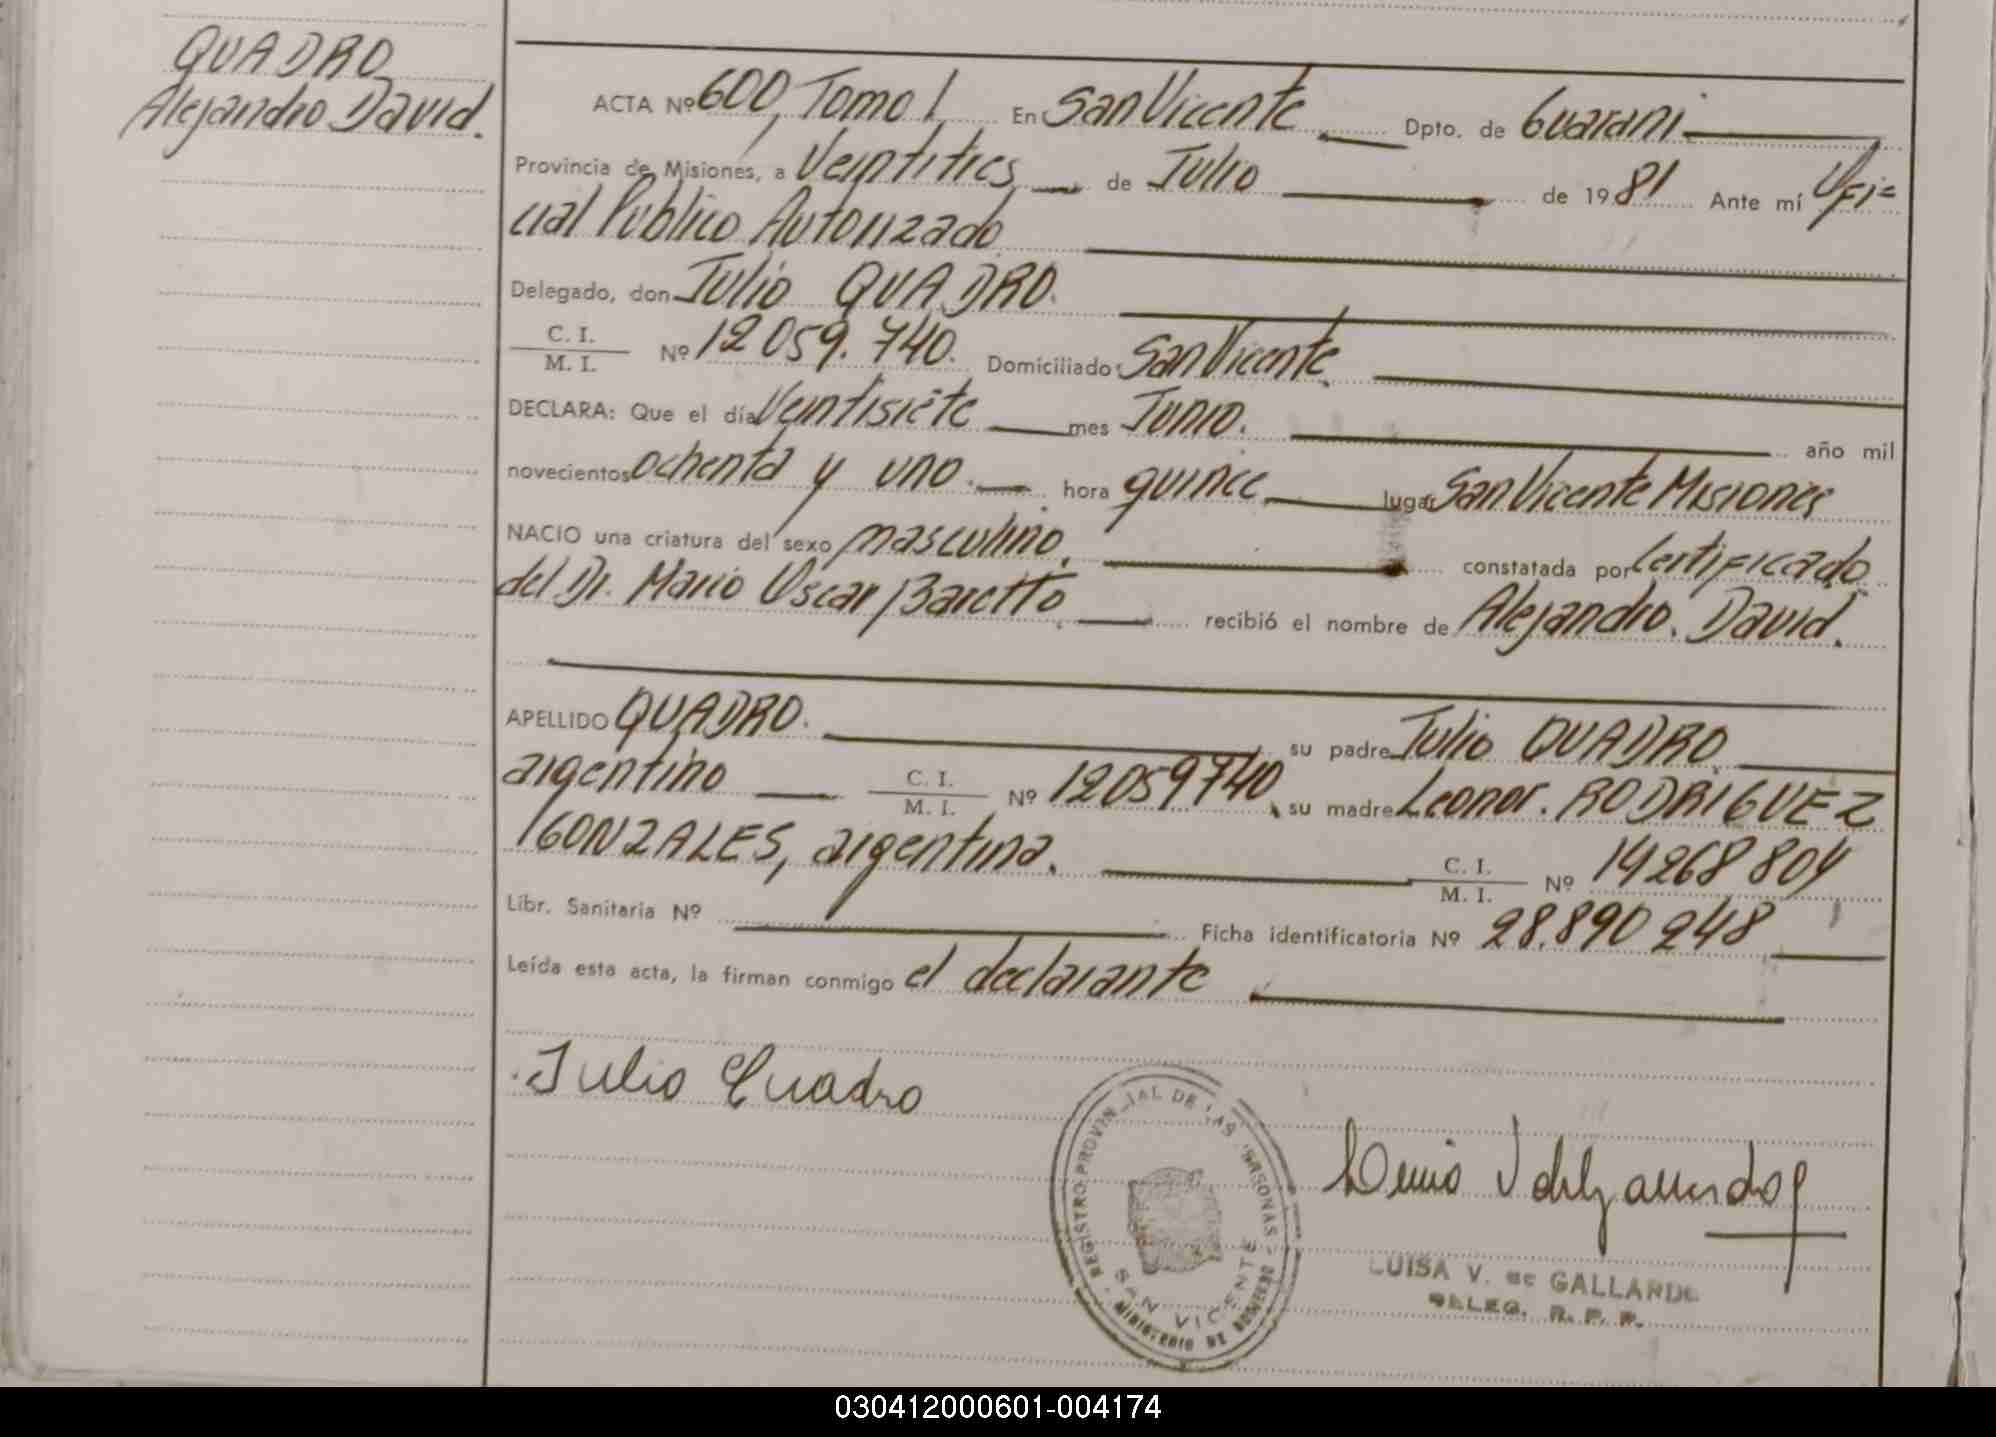 QUADRO
Alejandro David.
ACTA Nº 600, Tomo I, En San Vicente Dpto. de Guarani
Provincia de Misiones, a Veintitres de Julio de 1981 Ante mí Ofi=
cial Publico Autorizado
Delegado, don Julio QUADRO.
C. I.
M. I. Nº 12 059. 740. Domiciliado: San Vicente.
DECLARA: Que el día Veintisiete mes Junio. año mil
novecientos ochenta y uno. hora quince lugar San Vicente Misiones
NACIO una criatura del sexo masculino. constatada por Certificado
del Dr. Mario Oscar Baretto. recibió el nombre de Alejandro, David.
APELLIDO QUADRO. su padre Julio QUADRO.
argentino C. I.
M. I. Nº 12059740, su madre Leonor. RODRIGUEZ
GONZALES, argentina. C. I.
M. I. Nº 14268804
Libr. Sanitaria Nº Ficha identificatoria Nº 28.890 248
Leída esta acta, la firman conmigo el declarante
Julio Cuadro
REGISTRO PROVINCIAL DE LAS PERSONAS
SAN VICENTE
MINISTERIO DE GOBIERNO
LUISA V. de GALLARDO
DELEG. R. P. P.
030412000601-004174